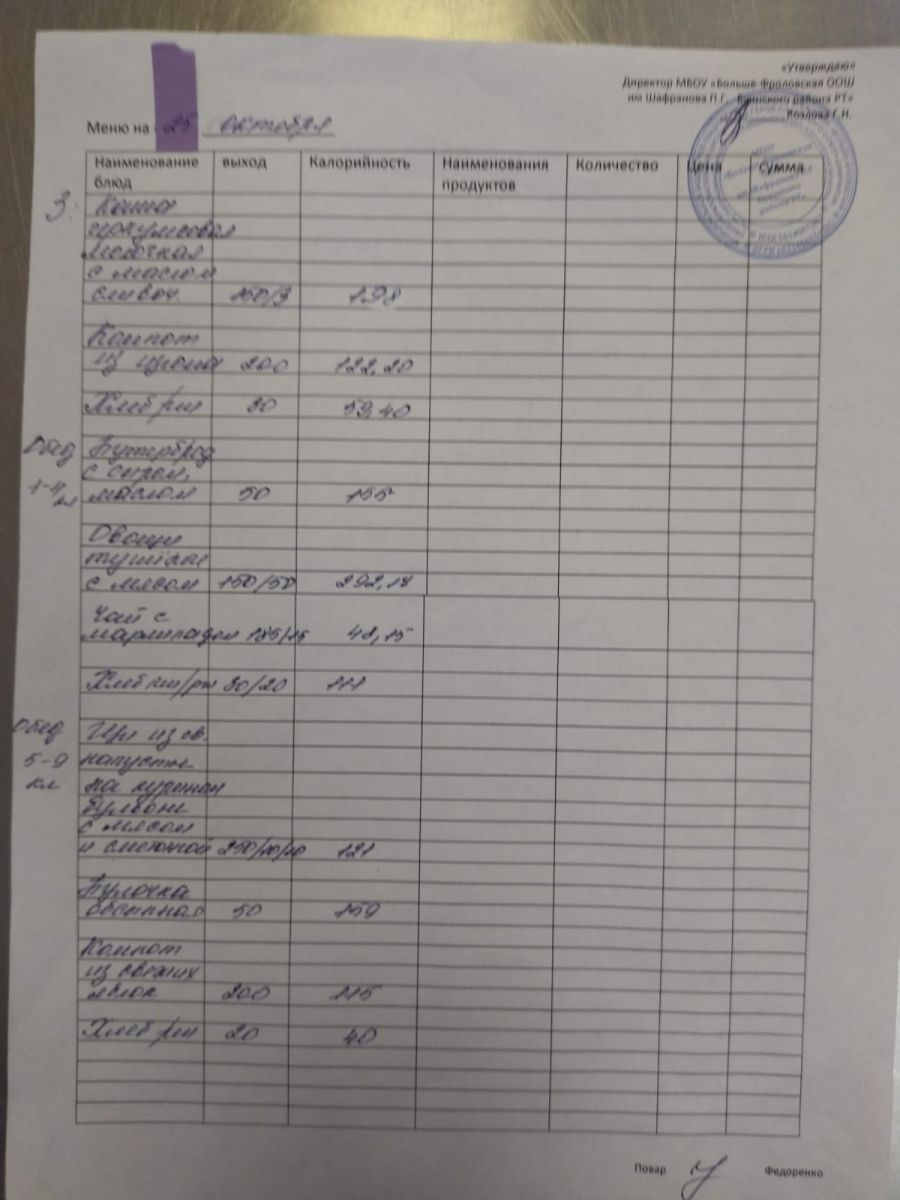 «Утверждаю»
Директор МБОУ «Больше-Фроловская ООШ
им Шафранова П.Г. Буинского района РТ»
Козлова Г.И.
Меню на 25 октября
Наименование блюд выход Калорийность Наименования продуктов Количество Цена сумма
З. Каша
геркулесовая
молочная
с маслом
сливоч. 150/3 198
Компот
из 200 122,20
Хлеб рж 30 59,40
Обед Бутерброд
с сыром,
1-4 кл маслом 50 155
Овощи
тушёные
с мясом 150/50 292,18
Чай с
мармеладом 185/15 48,15
Хлеб пш/рж 30/20 111
Обед Щи из св.
5-9 капусты
кл на курином
бульоне
с мясом
и сметаной 250/10/10 121
Булочка
50 159
Компот
из свежих
яблок 200 115
Хлеб рж 20 40
Повар Федоренко